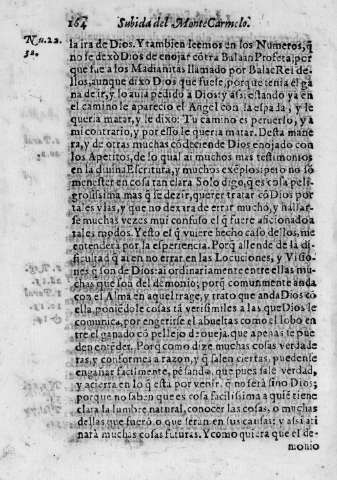 164 Subida del Monte Carmelo.
Nu. 22.
32.
la ira de Dios. Y tambien leemos en los Numeros, q̃
no se dexò Dios de enojar cõtra Balaan Profeta, por
que fue a los Madianitas llamado por Balac Rei de-
llos, aunque dixo Dios que fuese, porque tenia el ga
na de ir, y lo auia pedido a Dios: y asi estando ya en
el camino le aparecio el Angel con la espada, y le
queria matar, y le dixo: Tu camino es peruerso, y a
mi contrario, y por ello le queria matar. Desta mane
ra, y de otras muchas cõdeciende Dios enojado con
los Apetitos, de lo qual ai muchos mas testimonios
en la diuina Escritura, y muchos exẽplos: pero no sõ
menester en cosa tan clara. Solo digo, q̃ es cosa peli-
grosissima mas q̃ se dezir, querer tratar cõ Dios por
tales vias, y que no dexarà de errar mucho, y hallar-
se muchas vezes mui confuso el q̃ fuere aficionado a
tales modos. Y esto el q̃ vuiere hecho caso dellos, me
entenderà por la esperiencia. Porq̃ allende de la di-
ficultad q̃ ai en no errar en las Locuciones, y Visio-
nes q̃ son de Dios: ai ordinariamente entre ellas mu-
chas que son del demonio; porq̃ comunmente anda
con el Alma en aquel trage, y trato que anda Dios cõ
ella, poniẽdole cosas tã verisimiles a las que Dios le
comunica, por engerirse el a bueltas como el lobo en
tre el ganado cõ pellejo de oueja, que apenas se pue
den entẽder. Porq̃ como dize muchas cosas verdade
ras, y conformes a razon, y q̃ salen ciertas, puedense
engañar facilmente, pẽsando, que pues sale verdad,
y acierta en lo q̃ està por venir, q̃ no serà sino Dios;
porque no saben que es cosa facilissima a quiẽ tiene
clara la lumbre natural, conocer las cosas, o muchas
dellas que fuerõ o que seran en sus causas: y asi ati
narà muchas cosas futuras. Y como quiera que el de-
monio